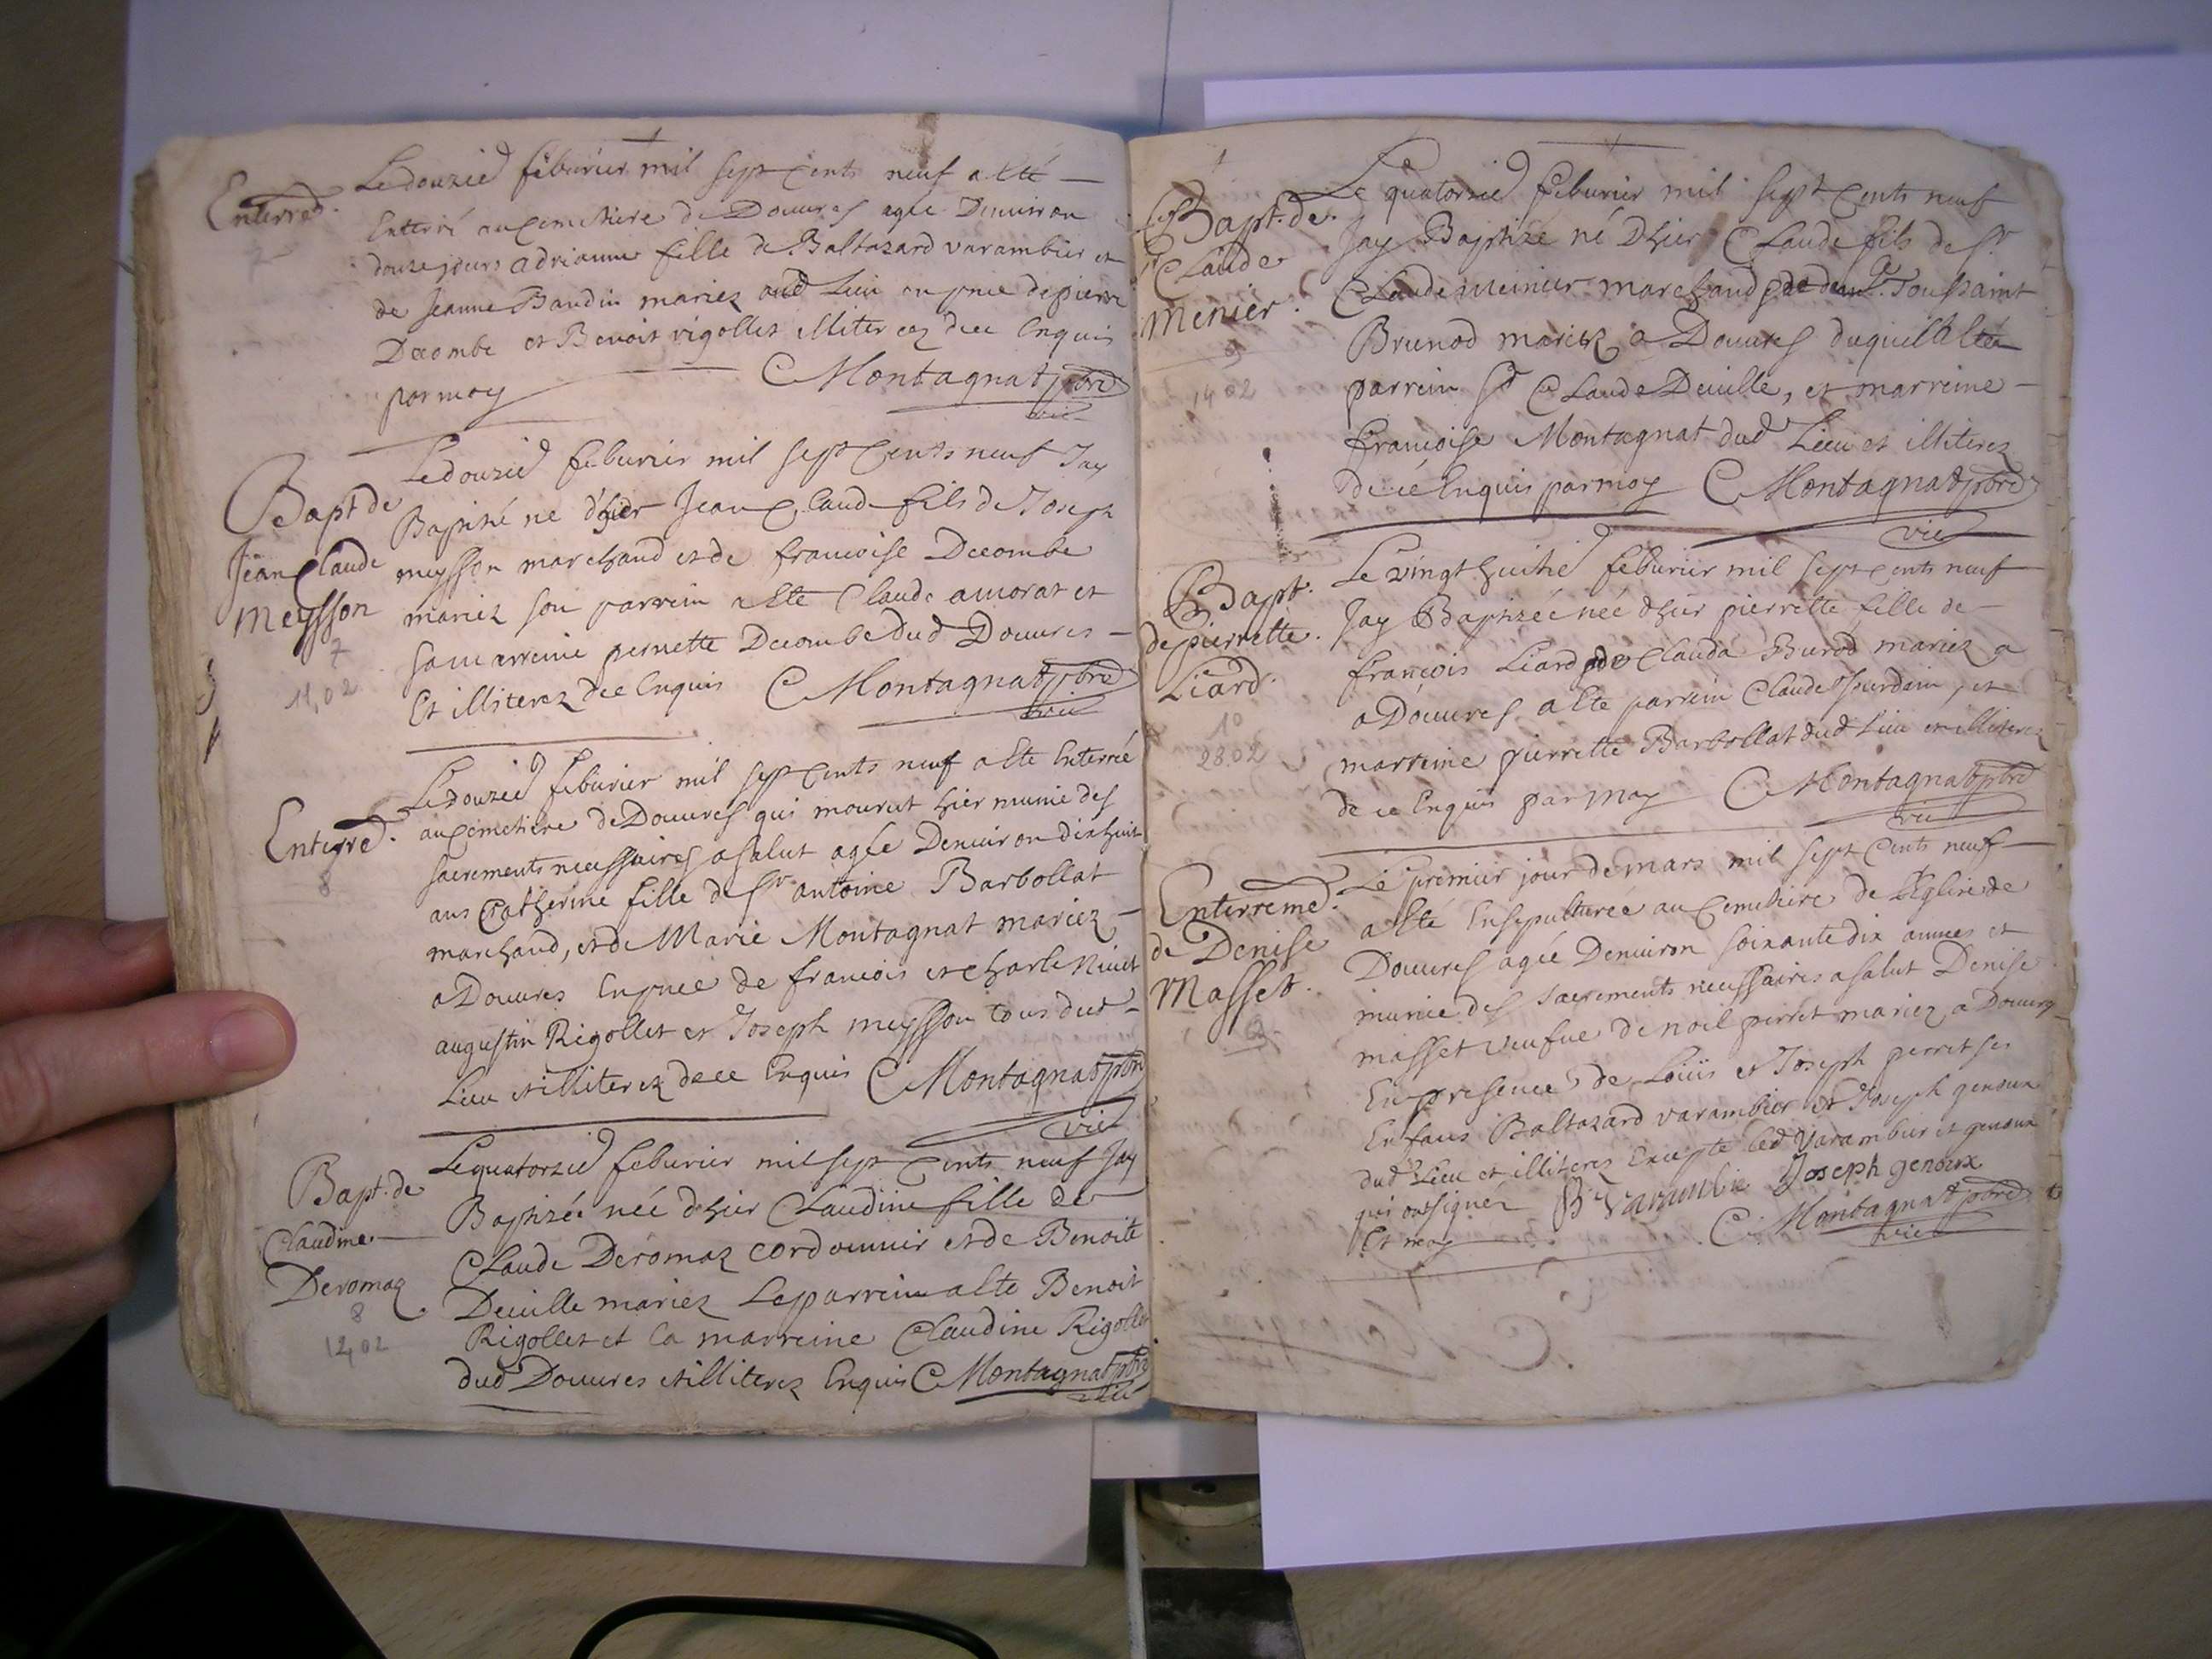 Enterred.
Le douzie feburier mil sept cents neuf a esté
Enterré au cemetiere de Douures agee Denuiron
douze jours adrianne fille de Baltazard varambier et
de Jeanne Baudin mariez aud Lieu en pnce de pierre
Decombe et Benoit rigollet illiterez dece Enquis
par moy C Montagnat pbre
vic
Bapt de
Jean Claude
Meysson
7
11,02
Le douzie feburier mil sept cents neuf Jay
Baptizé ne d'hier Jean Claude fils de Joseph
meysson marchand et de francoise Decombe
mariez son parrein a Esté Claude amorat et
sa marreine pernette Decombe dud Douures
Et illiterez dce Enquis C Montagnat pbre
vic
Enterred.
8
Le douzie feburier mil sept cents neuf a esté Enterrée
au cemetiere de Douures qui mourut hier munie des
sacrements necessaires a salut agée Denuiron dixhuit
ans Catherine fille de Sr antoine Barbollat
marchand, et de Marie Montagnat mariez
a Douures En pnce de francois et Charle Niuet
augustin Rigollet et Joseph meysson tous dud
Lieu et illiterez de ce Enquis C Montagnat pbre
vic
Bapt. de
Claudine
Deromaz
8
12,02
Le quatorzie feburier mil sept Cents neuf Jay
Baptizée née d'hier Claudine fille de
Claude Deromaz cordonnier et de Benoite
Deuille mariez Le parrein a Esté Benoit
Rigollet et la marreine Claudine Rigollet
dud Douures et illiterez Enquis C Montagnat pbre
vic
Bapt. de
Claude
menier.
9
1402
Le quatorzie feburier mil sept Cents neuf
Jay Baptize né D'hier Claude fils de Sr
Claude meinier marchand Toussaint
Brunod mariez a Douures duquel a Esté
parrein Sr Claude Deuille, et marreine
francoise Montagnat dud Lieu et illiterez
de ce Enquis par moy C Montagnat pbre
vic
Bapt.
de pierrette.
Liard.
10
28.02
Le vingt huitie feburier mil sept cents neuf
Jay Baptizée née d'hier pierrette fille de
francois Liard Clauda Burod mariez a
a Douures a Esté parrein Claude Jourdain, et
marreine pierrette Barbollat dud Lieu et illiterez
de ce Enquis par moy C Montagnat pbre
vic
Enterremed.
de Denise
Masset.
9
Le premier jour de mars mil sept Cents neuf
a Esté Ensepulturée au Cemetiere de L'Eglise de
Douures agée Denuiron soixante dix annees et
munie des sacrements necessaires a salut Denise
masset veufue de noel perret mariez a Douures
En presence de Loüis et Joseph perret ses
Enfans Baltazard varambier et Joseph genoux
dud Lieu et illiterez Excepte led Varambier et genoux
qui ont signez B Varambie Joseph genoux
Et moy C. Montagnat pbre
vic